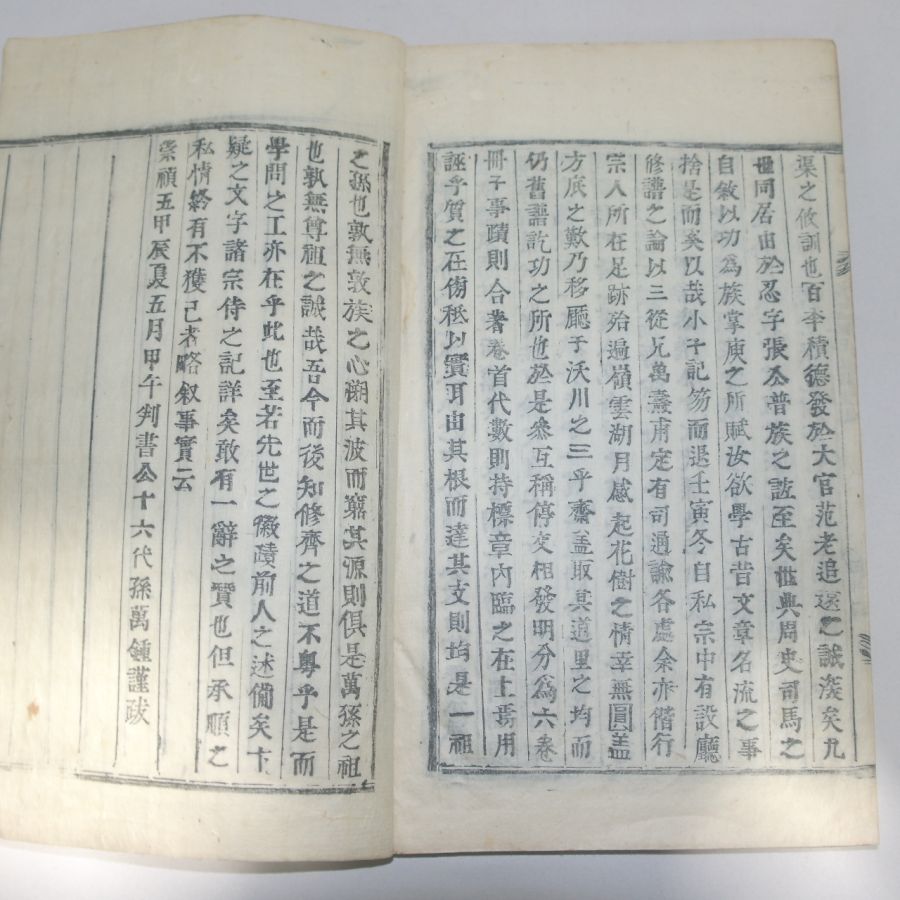 渠之攸訓也百李積德發於大官范老追遠之誠淺矣九
世同居由於忍字張公普族之誼至矣世典周史司馬之
自敘以功爲族掌庚之所賦汝欲學古昔文章名流之事
捨是而奚以哉小子記笏而退壬寅冬自私宗中有設廳
修譜之論以三從兄萬壽甫定有司通諭各處余亦偕行
宗人所在足跡殆過嶺雲湖月感起花樹之情幸無圓盖
方底之歎乃移廳于沃川之三乎齋盖取其道里之均而
仍舊譜訖功之所也於是參互稱停交相發明分爲六卷
冊子事蹟則合著卷首代數則持標章內臨之在上焉用
誣乎質之在傍秪以實耳由其根而達其文則均是一祖
之孫也孰無敦族之心溯其波而窮其源則俱是萬孫之祖
也孰無尊祖之誠哉吾今而後知修齊之道不粤乎是而
學問之工亦在乎此也至若先世之徽蹟前人之述備矣卞
疑之文字諸宗侍之記詳矣敢有一辭之贅也但承順之
私情終有不獲已者略敍事實云
崇禎五甲辰夏五月甲午判書公十六代孫萬鍾謹跋